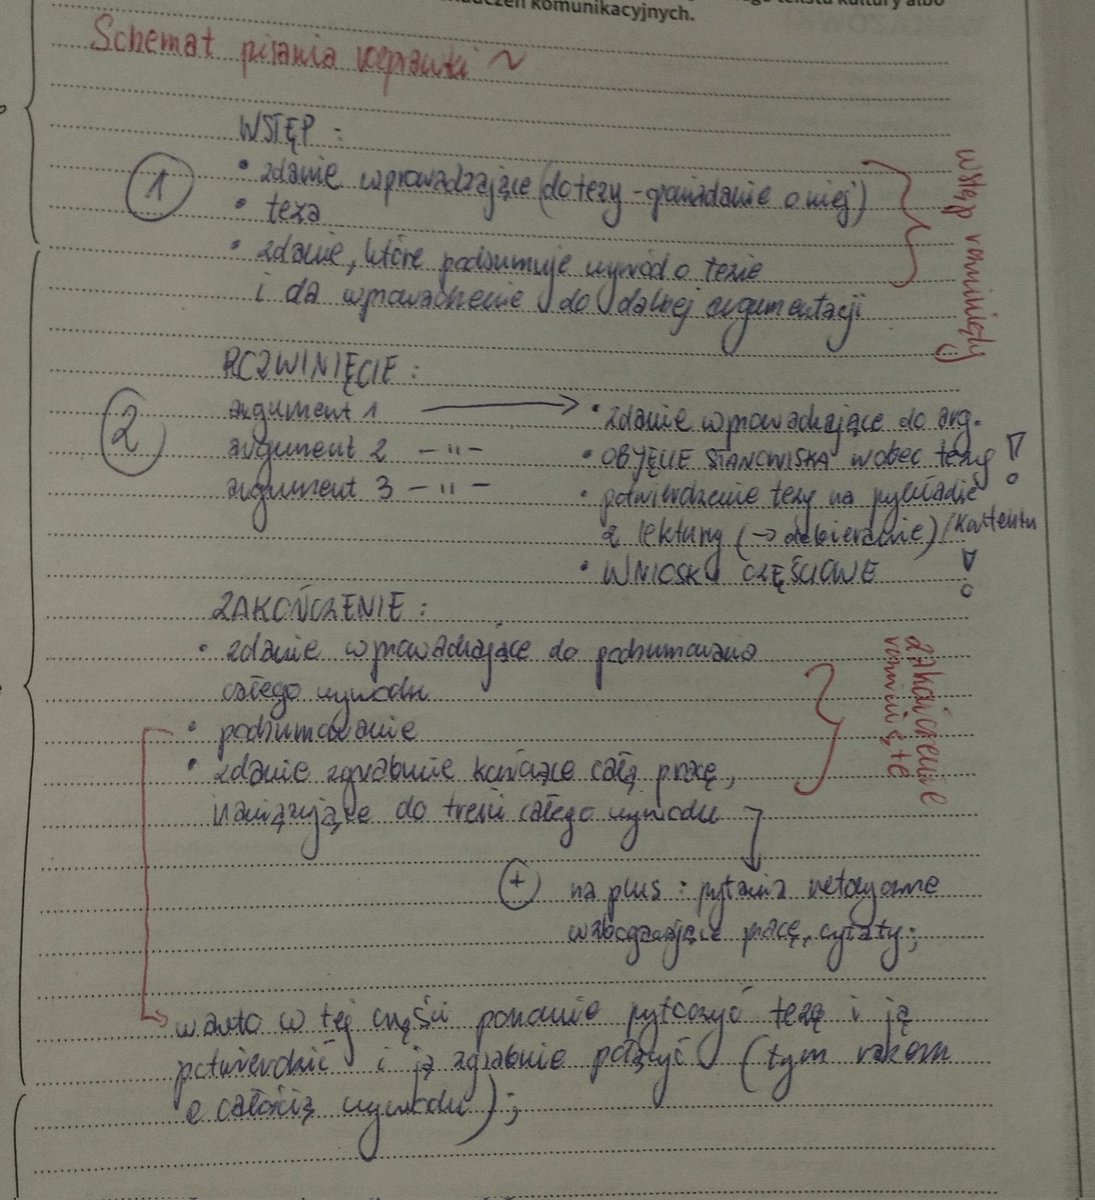 komunikacyjnych.
Schemat pisania rozprawki ~
WSTĘP :
1
• zdanie wprowadzające (do tezy - gawędzanie o niej)
• teza
• zdanie, które podsumuje wywód o tezie
i da wprowadzenie do dalszej argumentacji
wstęp rozwinięty
ROZWINIĘCIE :
2
argument 1 → • zdanie wprowadzające do arg.
argument 2 - " - • OBJĘCIE STANOWISKA wobec tezy !
argument 3 - " - • potwierdzenie tezy na przykładzie
z lektury (→ ) / kontekstu
• WNIOSKI CZĘŚCIOWE !
ZAKOŃCZENIE :
• zdanie wprowadzające do podsumowania
całego wywodu
• podsumowanie
• zdanie zgrabnie kończące całą pracę,
nawiązujące do treści całego wywodu
zakończenie
rozwinięte
+ na plus : pytania retoryczne
wzbogacające pracę, cytaty;
warto w tej części ponownie przytoczyć tezę i ją
potwierdzić i ją zgrabnie połączyć (tym razem
z całością wywodu);